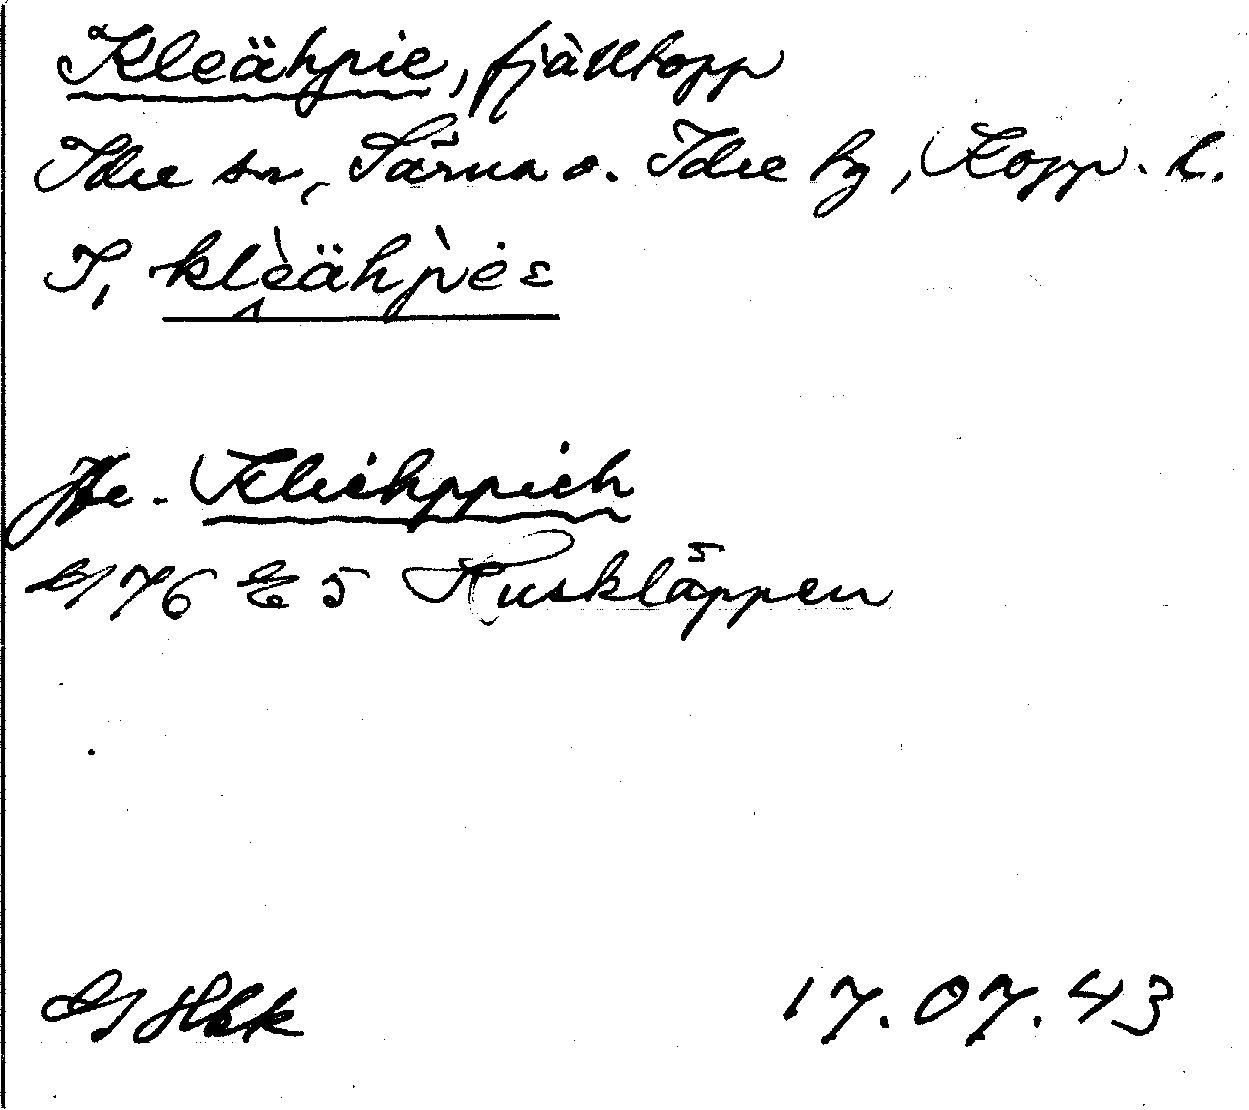 Kleähpie, fjälltopp
Idre sn, Särna o. Idre tg, Kopp. l.
I, klèähpie
Jfr. Kliehppieh
G 76 5 Ruskläppen
17.07.43